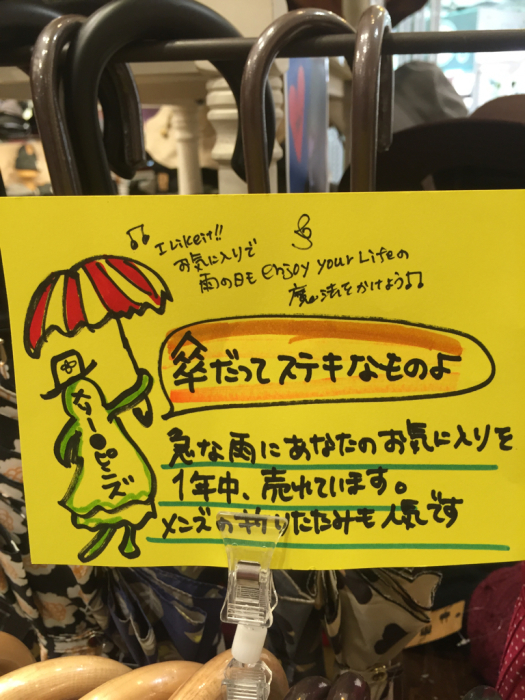 I Like it!!
お気に入りで
雨の日も enjoy your Lifeの
魔法をかけよう♫
傘だってステキなものよ
メリー●ピンズ
急な雨にあなたのお気に入りを
1年中、売れています。
メンズの折りたたみも人気です